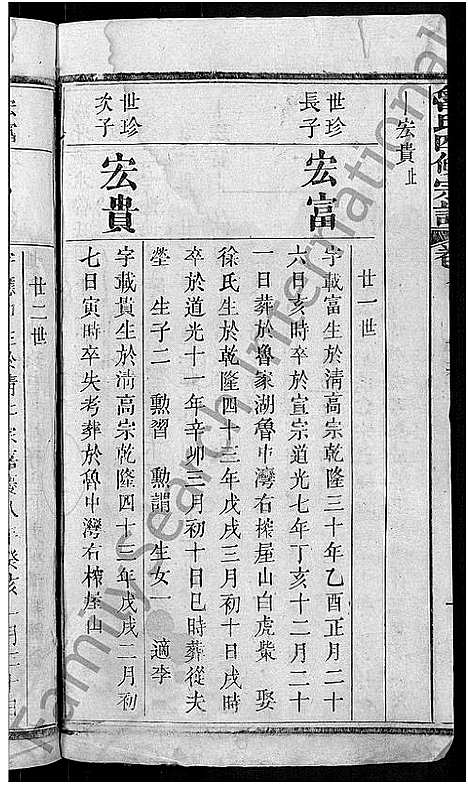 魯氏四修宗譜
宏貴止
廿一世
世珍
長子
宏富
字載富生於清高宗乾隆三十年乙酉正月二十
六日亥時卒於宣宗道光七年丁亥十二月二十
一日葬於魯家湖魯中灣右榨屋山白虎嘴 娶
徐氏生於乾隆四十三年戊戌三月初十日戌時
卒於道光十一年辛卯三月初十日巳時葬從夫
塋 生子二 勲習 勲謂 生女一 適李
世珍
次子
宏貴
字載貴生於清高宗乾隆四十三年戊戌二月初
七日寅時卒失考葬於魯中灣右榨屋山
廿二世
FamilySearch International